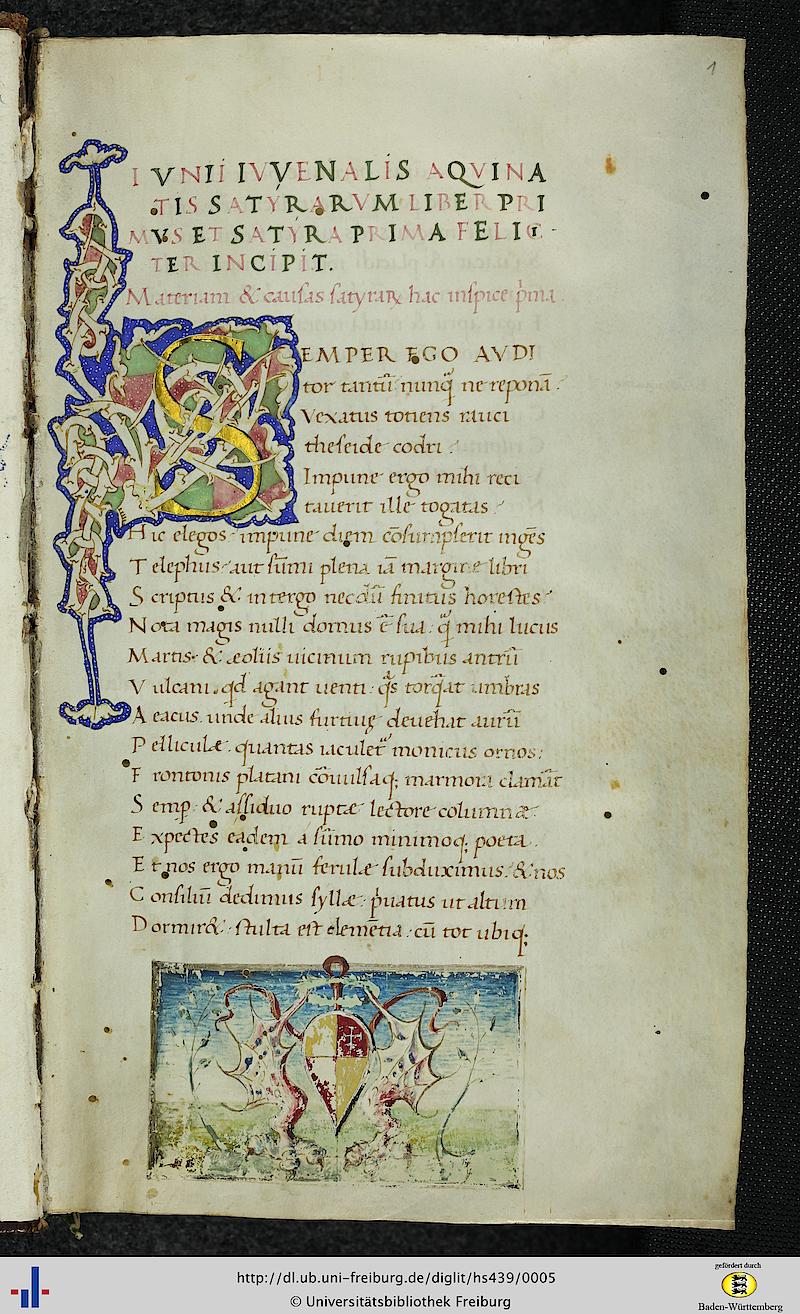 1
IVNII IVVENALIS AQVINA
TIS SATYRARVM LIBER PRI
MVS ET SATYRA PRIMA FELIC
TER INCIPIT.
Materiam & causas satyraꝝ hac inspice pͥma.
SEMPER EGO AVDI
tor tantū nunꝗ̄ ne reponā.
Vexatus totiens rauci
theseide codri.
Impune ergo mihi reci
tauerit ille togatas.
Hic elegos. impune diem cōsumpserit ingēs
Telephus. aut sūmi plena iā margine libri
Scriptus & intergo necdū finitus horestes.
Nota magis nulli domus ē sua. ꝗ̄ mihi lucus
Martis. & æoliis uicinum rupibus antrū
Vulcani. qd̄ agant uenti. qͣs torqͣat umbras
Aeacus. unde alius furtiuę deuehat aurū
Pelliculæ. quantas iaculetᷣ monicus ornos;
Frontonis platani cōuulsaq; marmora clamāt
Semp̱ & assiduo ruptæ lectore columnæ.
Expectes eadem a sūmo minimoq; poeta.
Et nos ergo manū ferulæ subduximus. & nos
Consiliū dedimus syllæ. pͥuatus ut altum
Dormir&. stulta est clemētia. cū tot ubiq;
http://dl.ub.uni-freiburg.de/diglit/hs439/0005
© Universitätsbibliothek Freiburg
gefördert durch
Baden-Württemberg